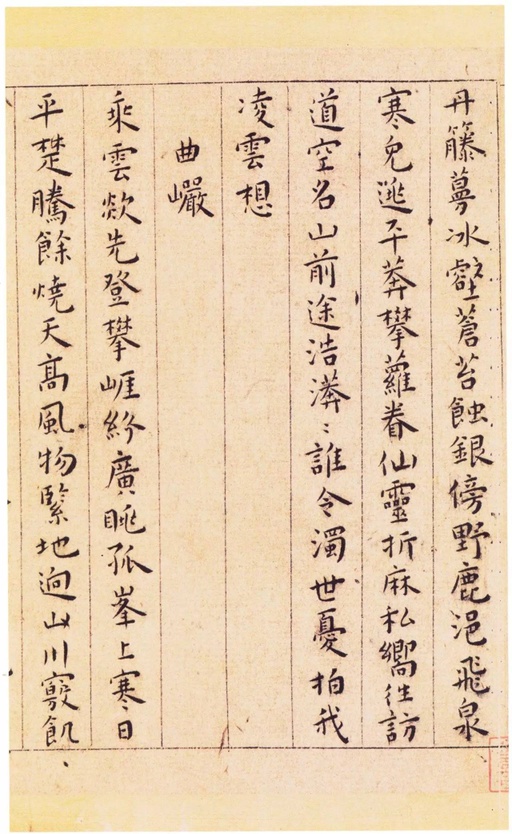 丹籐蔓冰壑蒼苔蝕銀傍野鹿浥飛泉
寒兔逃平莽攀蘿眷仙靈折麻私嚮往訪
道空名山前途浩漭〻誰令濁世憂拍我
凌雲想
曲巖
乘雲欻先登攀崕紛廣眺孤峯上寒日
平楚騰餘燒天高風物緊地逈山川竅飢